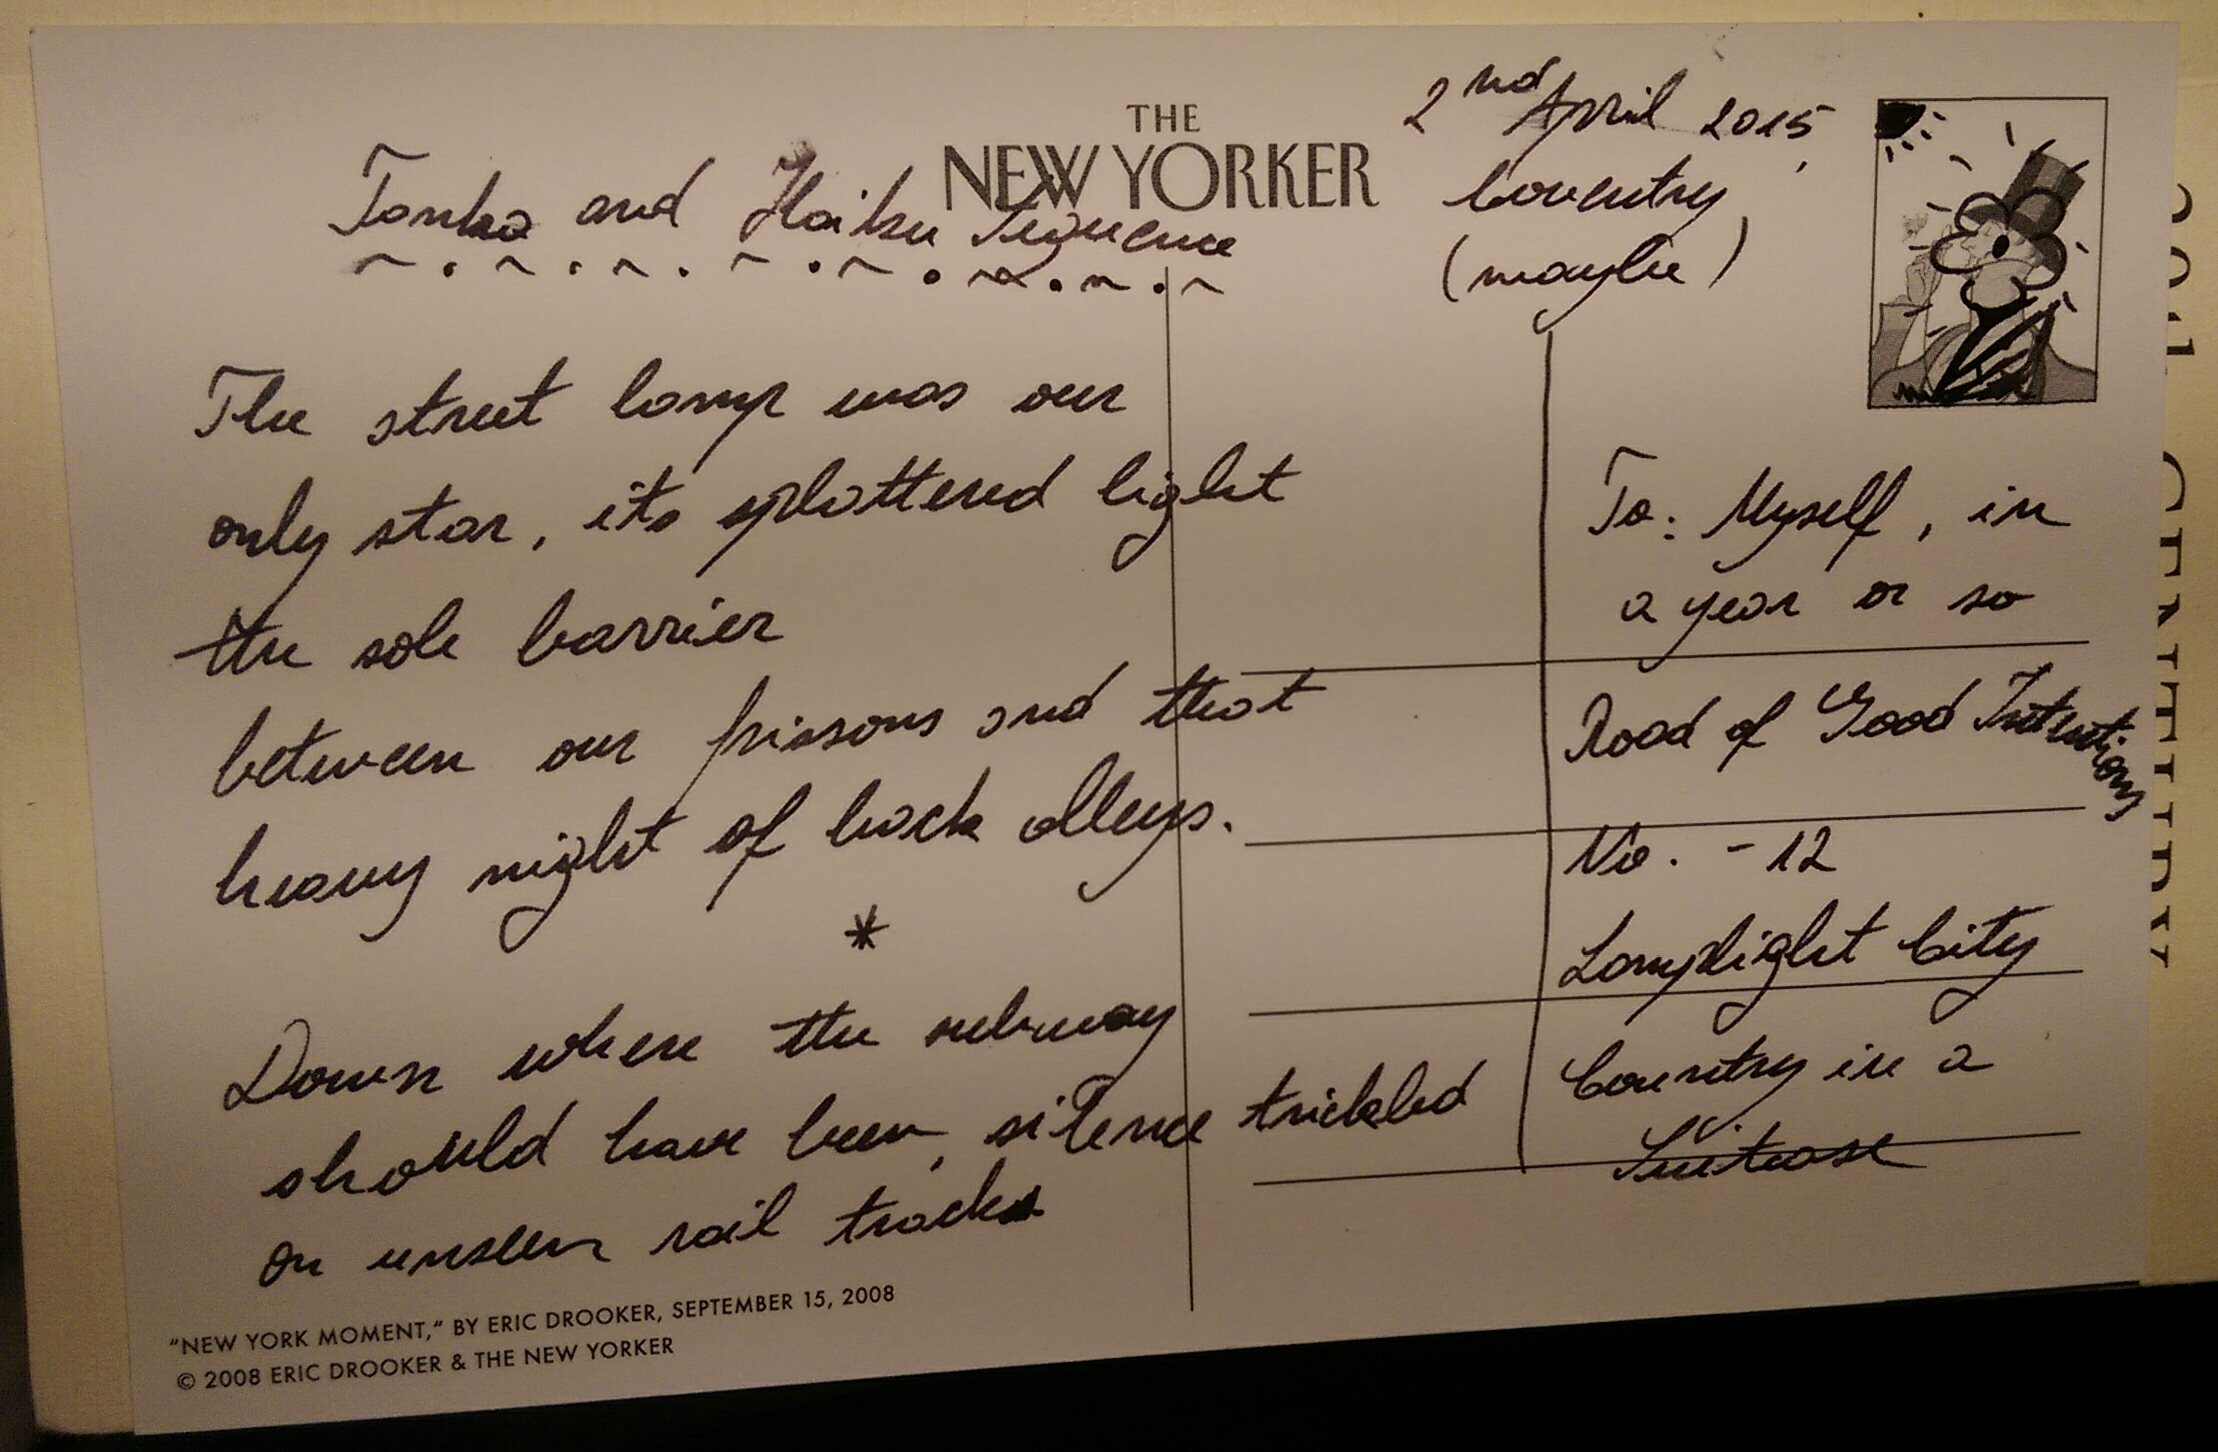 THE
NEW YORKER
2nd April 2015,
Coventry
(maybe)
Tanka and Haiku Sequence
The street lamp was our
only star, its splattered light
the sole barrier
between our frissons and that
heavy night of back alleys.
*
Down where the subway
should have been, silence trickled
on unseen rail tracks
To: Myself, in
a year or so
Road of Good Intentions
No. -12
Lamplight City
Country in a
Suitcase
"NEW YORK MOMENT," BY ERIC DROOKER, SEPTEMBER 15, 2008
© 2008 ERIC DROOKER & THE NEW YORKER